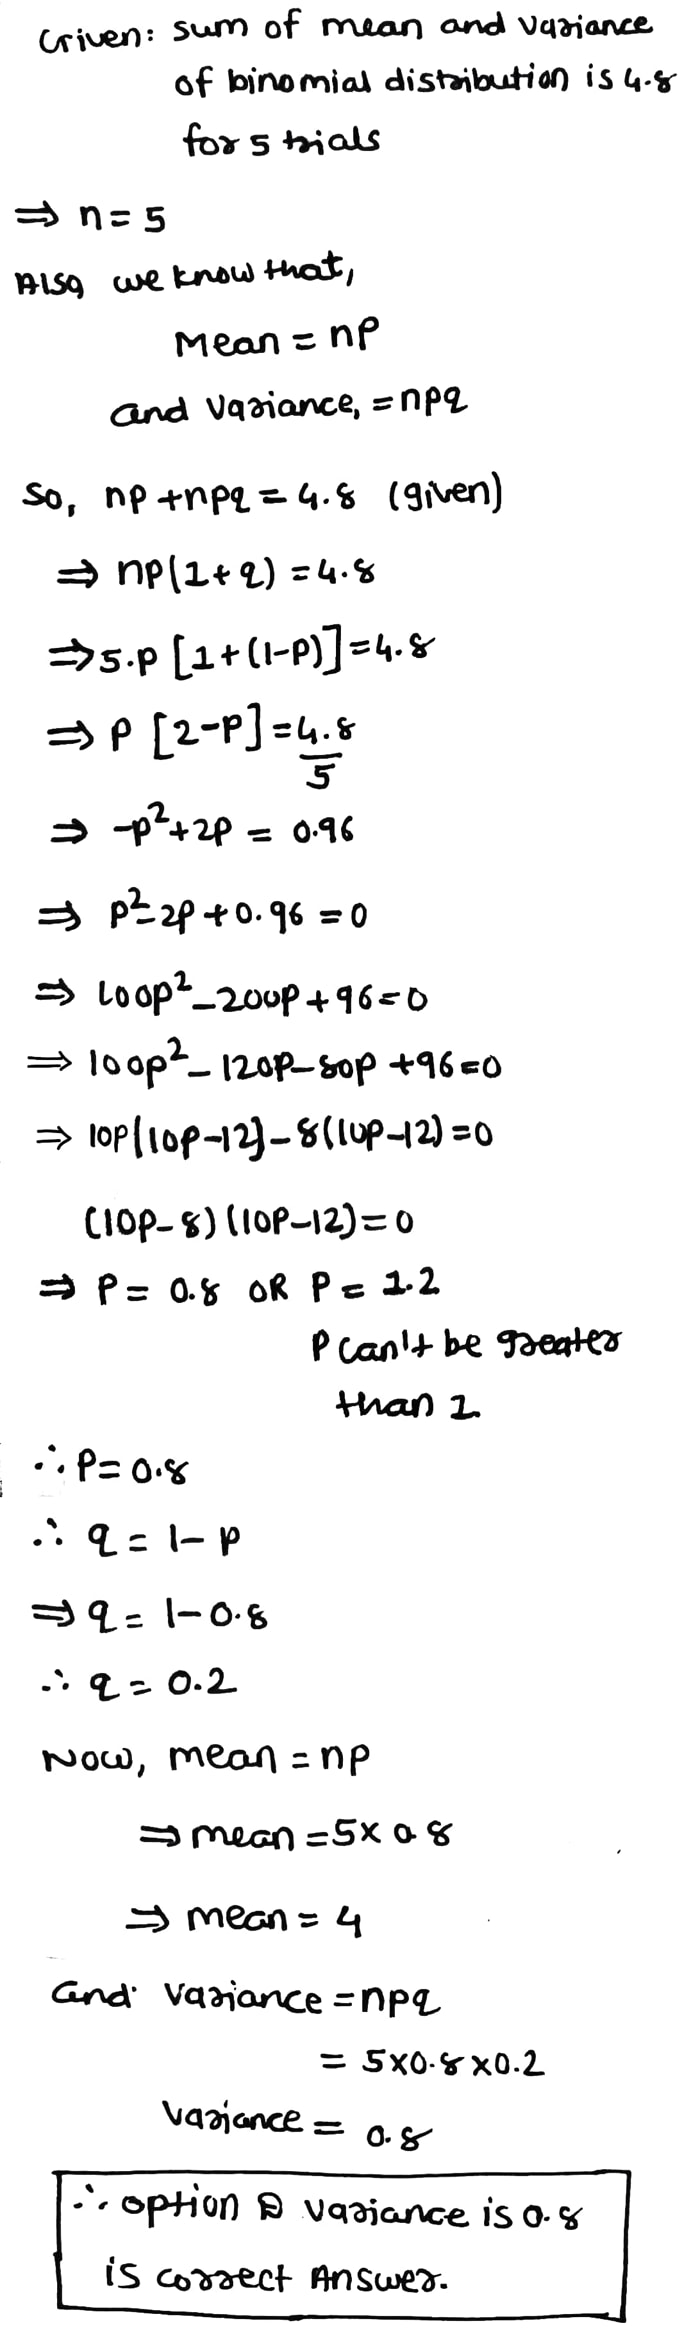 Given: sum of mean and variance
of binomial distribution is 4.8
for 5 trials
⇒ n = 5
Also, we know that,
Mean = np
and Variance, = npq
So, np + npq = 4.8 (given)
⇒ np(1+q) = 4.8
⇒ 5.p [1+(1-p)] = 4.8
⇒ p [2-p] = 4.8/5
⇒ -p²+2p = 0.96
⇒ p²-2p+0.96 = 0
⇒ 100p²-200p+96=0
⇒ 100p²-120p-80p+96=0
⇒ 10p(10p-12)-8(10p-12)=0
(10p-8)(10p-12)=0
⇒ p = 0.8 OR p = 1.2
p can't be greater
than 1
∴ p = 0.8
∴ q = 1-p
⇒ q = 1-0.8
∴ q = 0.2
Now, mean = np
⇒ mean = 5×0.8
⇒ mean = 4
and variance = npq
= 5×0.8×0.2
variance = 0.8
∴ option variance is 0.8
is correct Answer.